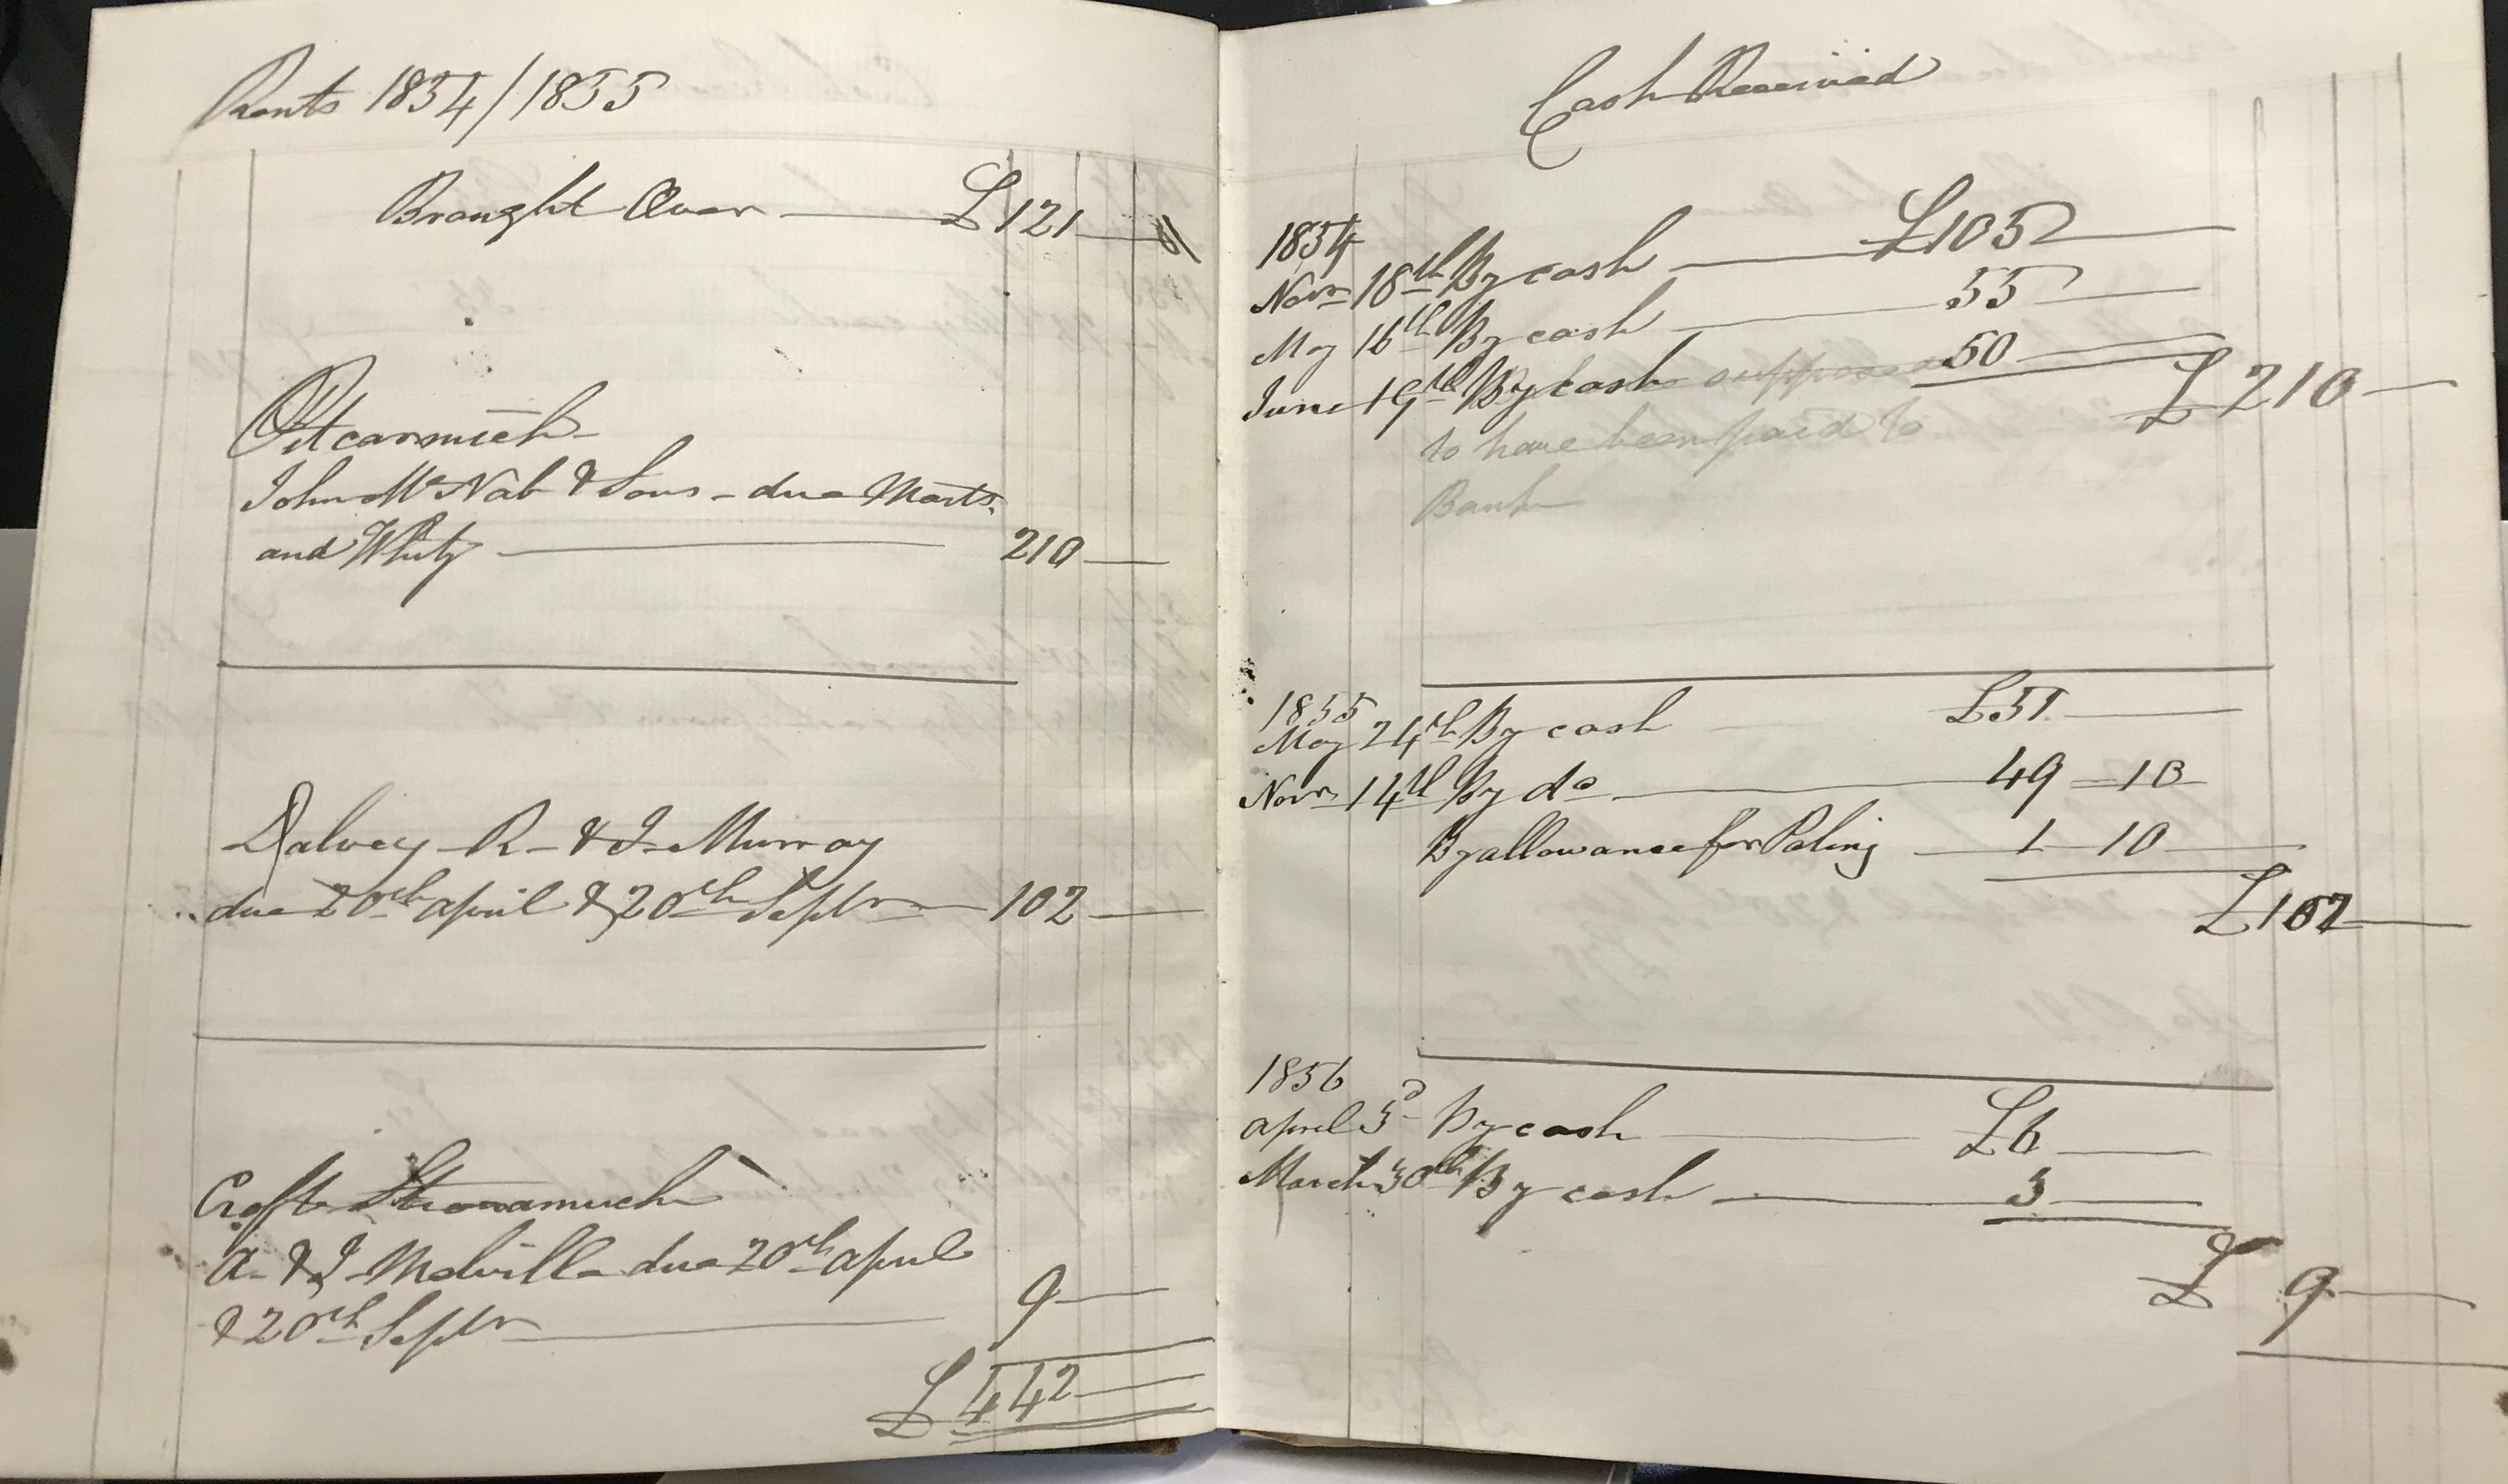 Rents 1854/1855
Brought Over £121
Pitcarmick
John McNab & Sons - due Marts.
and Whity 210
Dalvey R & J Murray
due 20th april & 20th Septr 102
Croft
A. & J. Melville due 20th april
& 20th Septr 9
£442
Cash Received
1854
Novr 18th By cash £105
May 16th By cash 55
June 19th By cash supposed 50
£210
to have been paid to
Bank
1855
May 24th By cash £51
Novr 14th By do 49 - 10
By allowance for Paling 1 - 10
£102
1856
april 3d By cash £6
March 30th By cash 3
£ 9